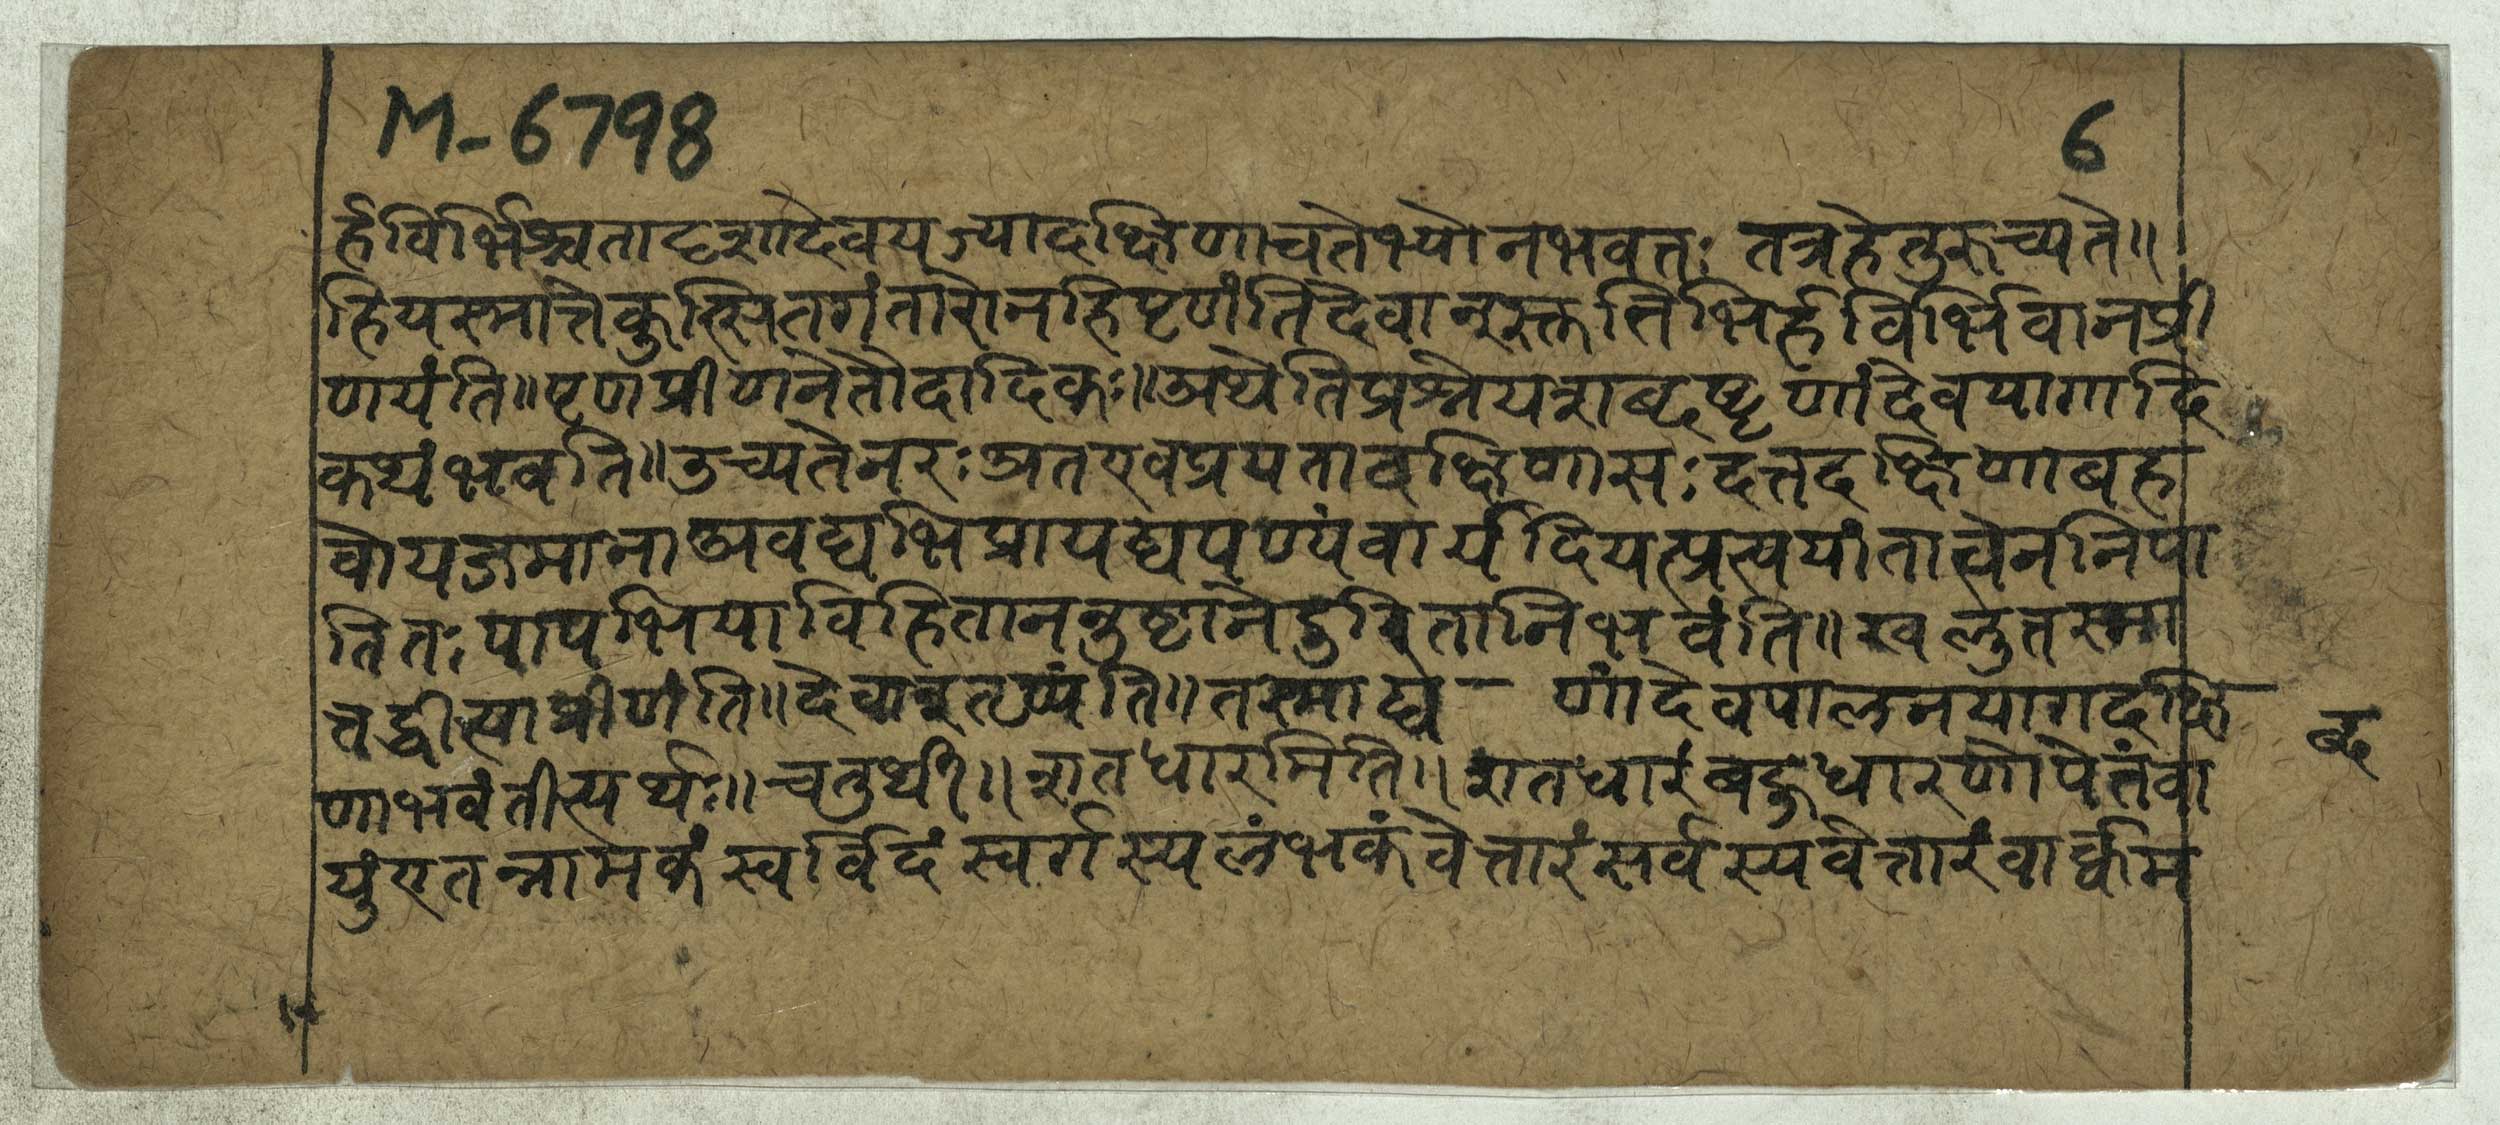 M-6798
6
र्हविर्भिश्चतादृशादैवयज्यादक्षिणाचतेभ्योनभवतः तत्रहेतुरुच्यते॥
हियस्मात्तेकुत्सितगंतारोनहिपृणंतिदेवान्स्क्ततिभिर्हविर्भिवानप्री
णयंति॥पृणप्रीणनेतौदादिकः॥अथेतिप्रश्नेयत्राब्दपृणांदेवयागादि
कथंभवति॥उच्यतेनरःअतएवप्रयतादक्षिणासःदत्तदक्षिणाबह
वोयजमानाअवद्यभिप्रायद्यपण्यंवार्यदियत्प्रत्ययांतात्वेननिपा
तितःपापभियाविहितानुनुष्टानेदुरितानिभवंति॥खलुतस्मा
त्तद्भीत्याप्रीणंति॥देवान्नृतप्यंति॥तस्माद्य णांदेवपालनयागदक्षि
द्ध
णाभवंतीत्यर्थः॥चतुर्थी॥शतधारमिति॥शतधारंबहुधारणोपेतंवा
युंएतन्नामकंस्वर्विदंस्वर्गस्यलंभकंवेत्तारंसर्वस्यवेत्तारंवार्क्कम